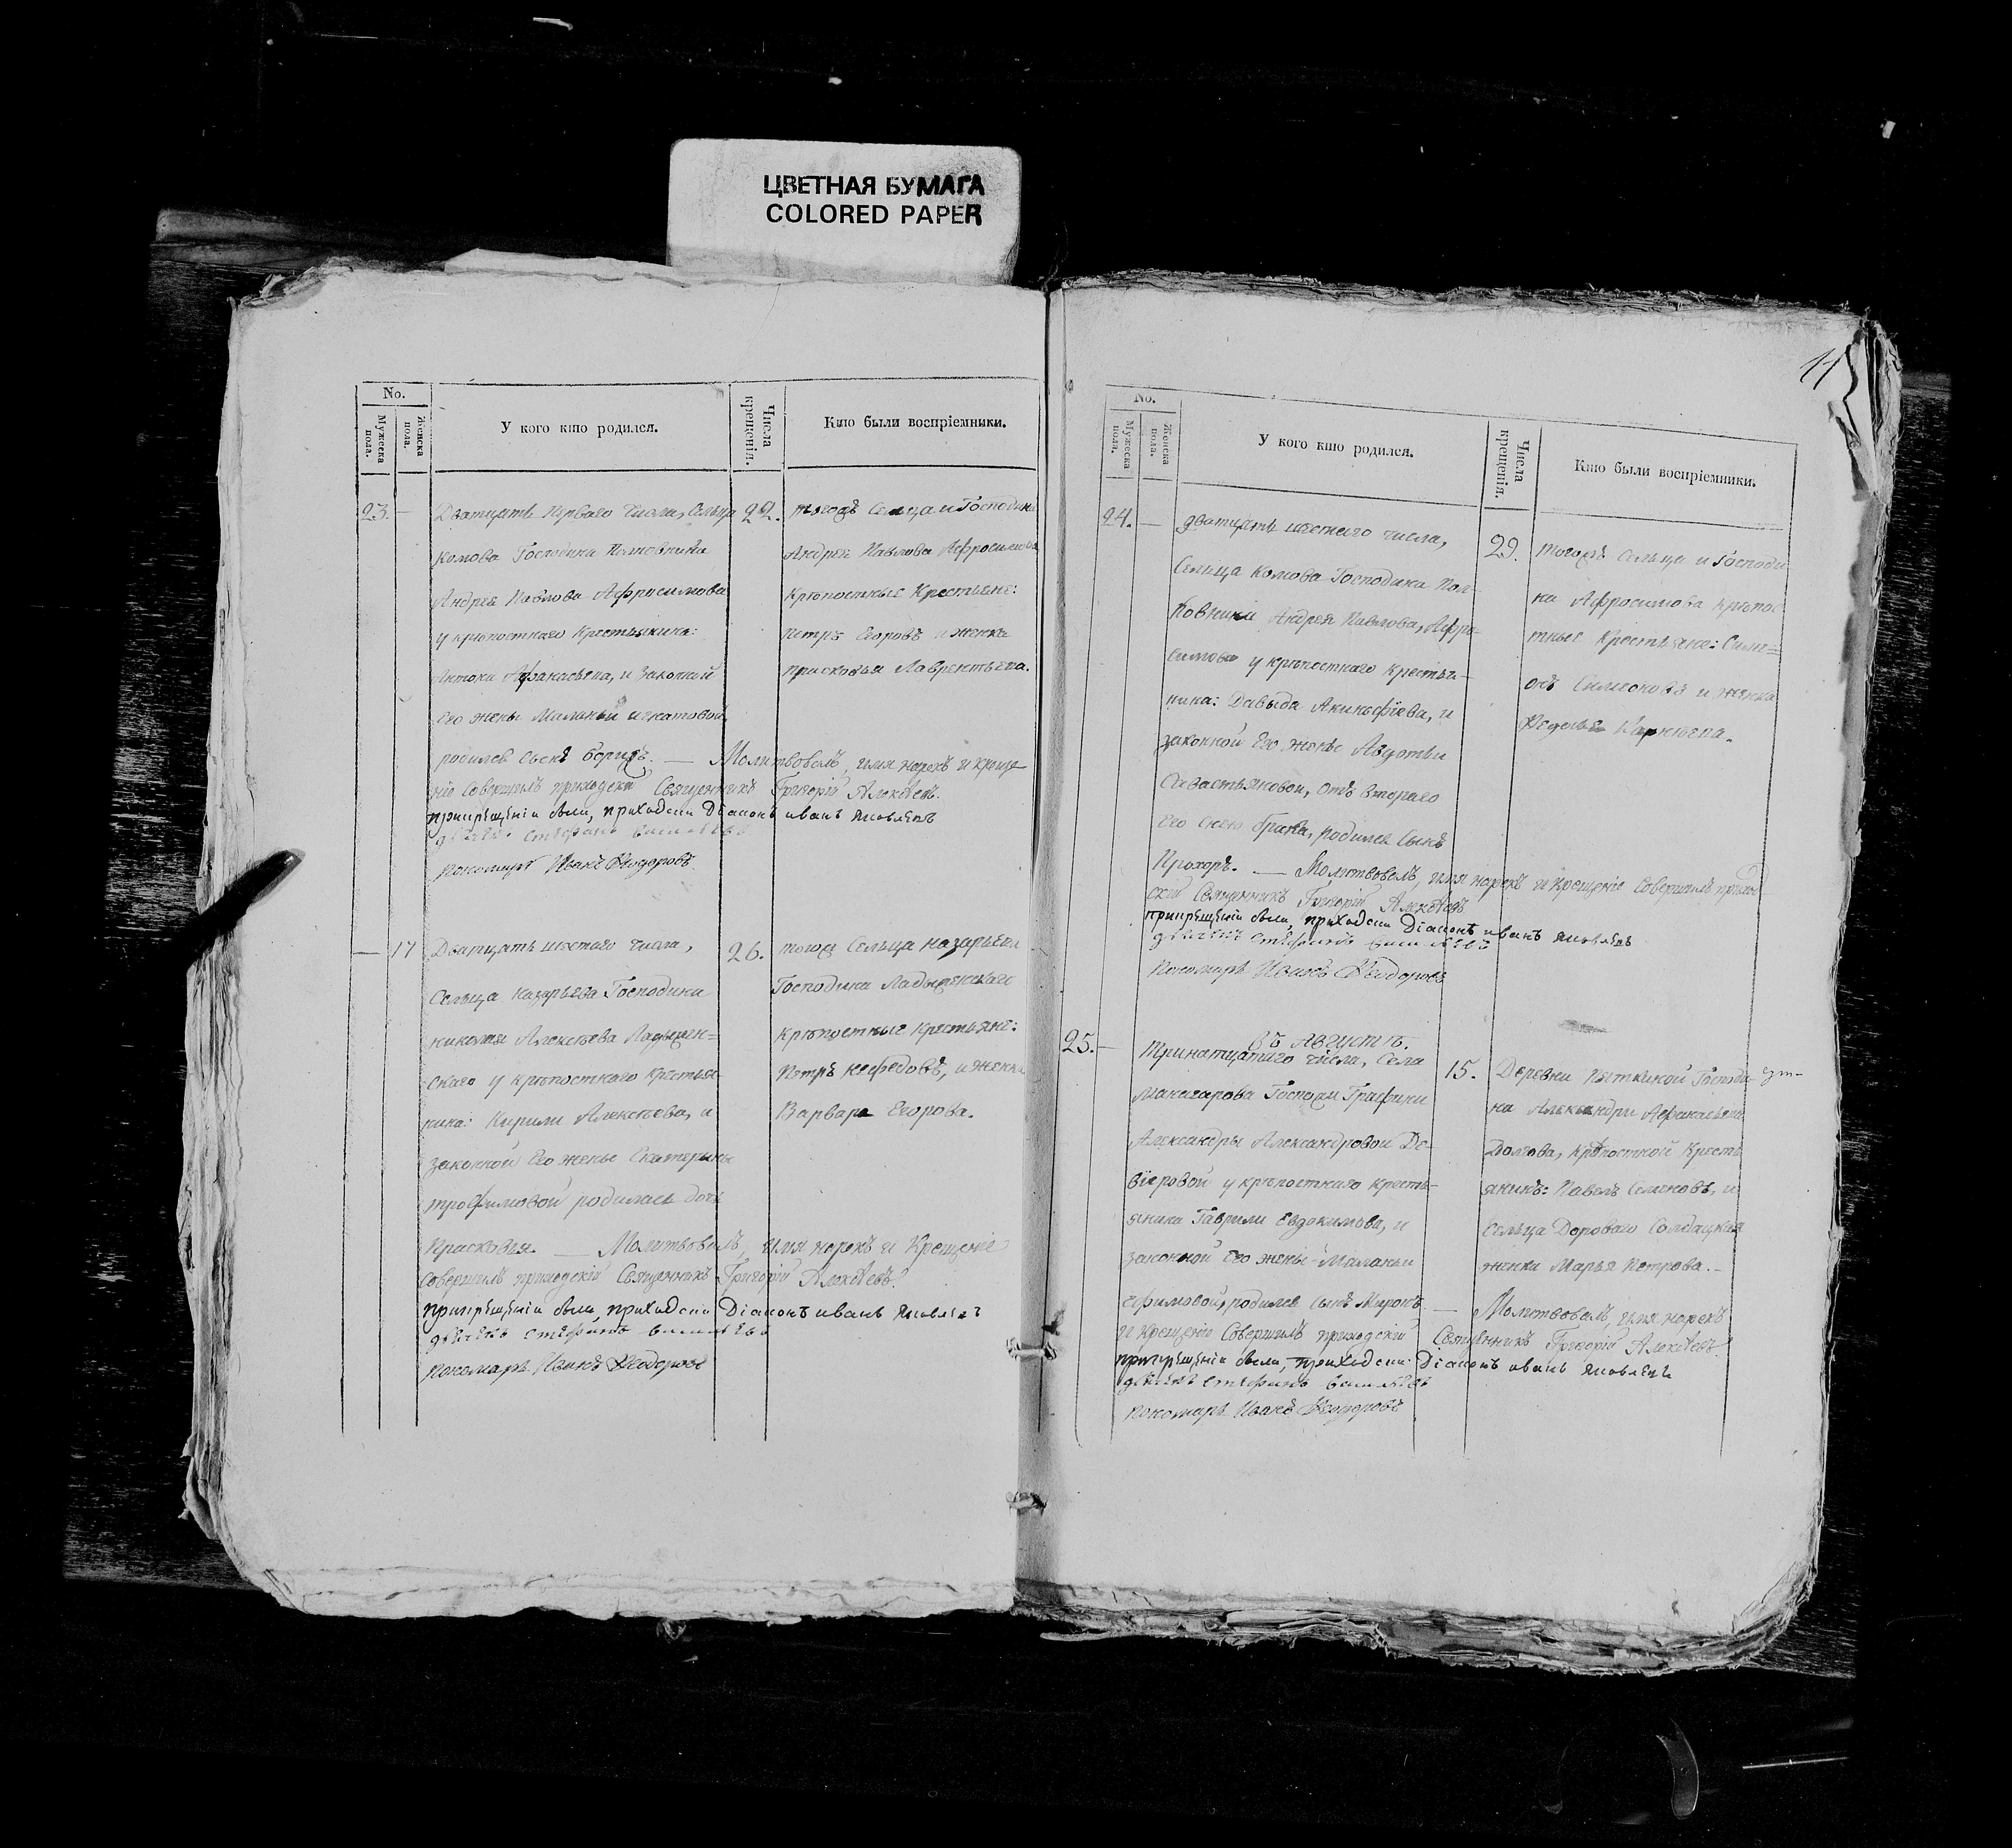 ЦВЕТНАЯ БУМАГА
COLORED PAPER
No.
Мужеска пола.
Женска пола.
У кого кто родился.
Числа крещенія.
Кто были воспріемники.
23. —
Дватцать перваго числа, Сельца
Комова Господина Полковника
Андрея Павлова Афросимова
у крѣпостнаго Крестьянина:
Антона Афанасьева, и законной
его жены Маланьи Игнатовой
родился Сынъ Борисъ. — Молитвовалъ, имя нарекъ и креще
ніе Совершилъ приходскій Священникъ Григорій Алексѣевъ.
при крещеніи были, приходски Діаконъ иванъ яковлевъ
дьячекъ стефанъ васильевъ
пономарь Иванъ Ѳеодоровъ
22.
тогожъ Сельца и Господина
Андрея Павлова Афросимова
крѣпостные Крестьяне:
петръ Егоровъ и женка
прасковья Лаврентьева.
— 17
Дватцать шестаго числа,
Сельца назарьева Господина
николая Алексѣева Ладыжен=
скаго у крѣпостнаго крестья
нина: Кирилы Алексѣева, и
законной его жены Екатерины
трофимовой родилась дочь
Прасковья. — Молитвовалъ, имя нарекъ и Крещеніе
Совершилъ приходскій Священникъ Григорій Алексѣевъ.
при крещеніи были, приходски Діаконъ иванъ яковлевъ
дьячекъ стефанъ васильевъ
пономарь Иванъ Ѳеодоровъ
26.
тогож Сельца назарьева
Господина Ладыженскаго
крѣпостные крестьяне:
Петръ нефедовъ, и женка
Варвара Егорова.
11
No.
Мужеска пола.
Женска пола.
У кого кто родился.
Числа крещенія.
Кто были воспріемники.
24. —
дватцать шестаго числа,
Сельца Комова Господина Пол-
ковника Андрея Павлова, Афро-
симова у крѣпостнаго крестья-
нина: Давыда Акинѳіева, и
законной его жены Авдотьи
Савастьяновой, отъ втораго
его снею брака, родился Сынъ
Прохоръ. — Молитвовалъ, имя нарекъ и крещеніе Совершилъ приход
скій Священникъ Григорій Алексѣевъ
при крещеніи были, приходски Діаконъ иванъ яковлевъ
дьячекъ стефанъ васильевъ
пономарь Иванъ Ѳеодоровъ
29.
тогожъ Сельца и Господи
на Афросимова крѣпос
тные крестьяне: Симе=
онъ Симеоновъ и женка
Ѳедосья Карнѣева.
Въ Августѣ.
25. —
Тринатцатаго числа, Села
Господжи Графини
Александры Александровой Де-
віеровой у крѣпостнаго кресть-
янина Гаврилы Евдокимова, и
законной его жены Маланьи
ефимовой, родился Сынъ Миронъ. — Молитвовалъ, имя нарекъ
и Крещеніе Совершилъ приходскій Священникъ Григорій Алексѣевъ.
при крещеніи были, приходски Діаконъ иванъ яковлевъ
дьячекъ стефанъ васильевъ
пономарь Иванъ Ѳеодоровъ
15.
Деревни Пыткиной Господи-
на Александра Афанасьева
Долгова, крѣпостной кресть
янинъ: Павелъ Семеновъ, и
сельца Дороваго Солдацкая
женка Марья Петрова. —